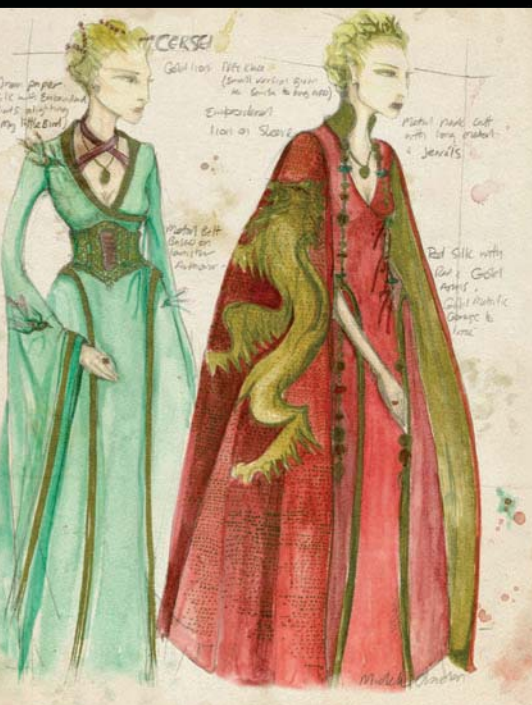 CERSEI
paper
silk with Embroidered
alighting
my little Bird)
Gold lion Necklace
(Small version given
to Sansa to
Embroidered
lion on Sleeve
Metal neck cuff
with long metal
& jewels
Metal Belt
Based on
Lannister
Armour
Red Silk with
Red & Gold
Gold Metallic
to